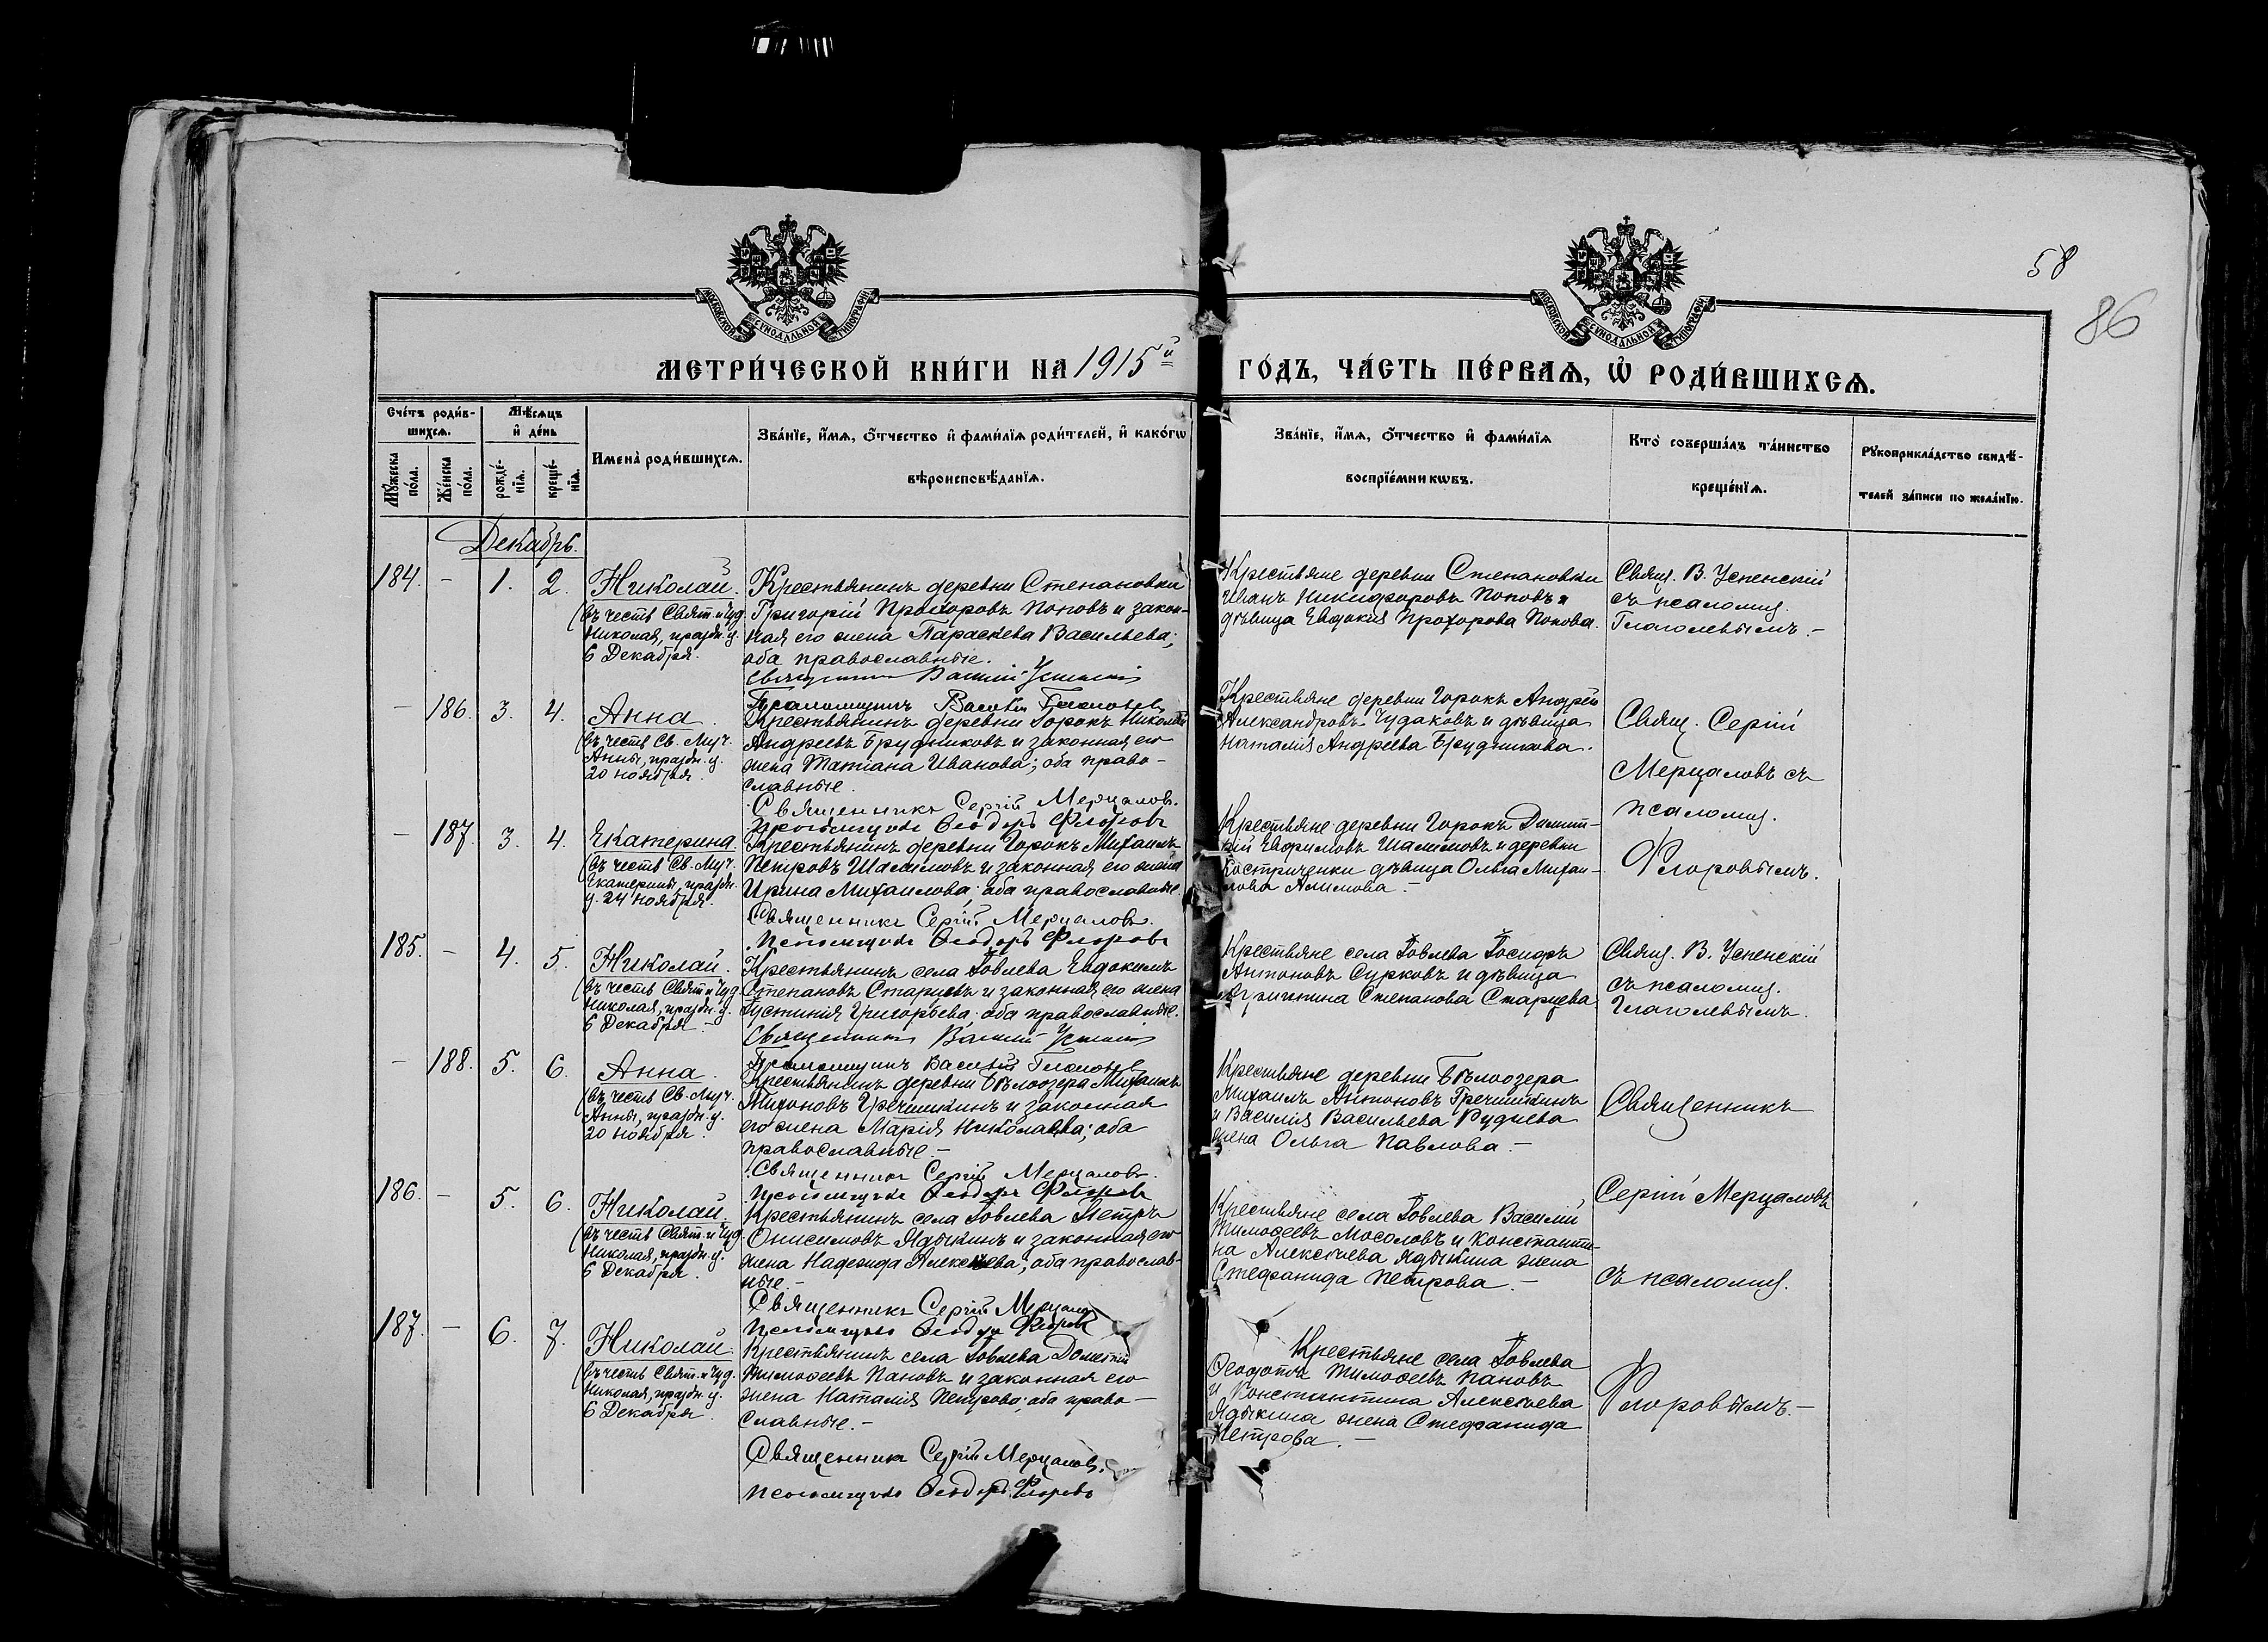 58
86
МОСКОВСКОЙ СУНОДАЛЬНОЙ ТИПОГРАФІИ
МОСКОВСКОЙ СУНОДАЛЬНОЙ ТИПОГРАФІИ
МЕТРИ́ЧЕСКОЙ КНИ́ГИ НА 1915й ГО́ДЪ, ЧА́СТЬ ПЕ́РВАѦ, Ѡ҆ РОДИ́ВШИХСѦ.
Сче́тъ роди́в-
шихсѧ.
Мѣ́сѧцъ
и҆ де́нь
Мꙋ́жеска по́ла.
Же́нска по́ла.
рожде́-
нїѧ.
креще́-
нїѧ.
Имена̀ роди́вшихсѧ.
Зва́нїе, и҆́мѧ, ѻ҆́тчество и҆ фами́лїѧ роди́телей, и҆ како́гѡ
вѣроисповѣ́данїѧ.
Зва́нїе, и҆́мѧ, ѻ҆́тчество и҆ фами́лїѧ
воспрїе́мникѡвъ.
Кто̀ соверша́лъ та́инство
креще́нїѧ.
Рꙋкоприкла́дство свидѣ́-
телей за́писи по жела́нїю.
Декабрь.
184. – 1. 2. Николай.
(въ честь Свят. и Чуд.
Николая, праздн. ц.
6 Декабря.
Крестьянинъ деревни Степановки
Григорій Прохоровъ Поповъ и закон-
ная его жена Параскева Васильева;
оба православные.
Священникъ Василій Успенскій
Псаломщикъ Василій Глаголевъ
Крестьяне деревни Степановки
Иванъ Никифоровъ Поповъ и
дѣвица Евдокия Прохорова Попова.
Свящ. В. Успенскій
съ псаломщ.
Глаголевымъ. –
– 186. 3. 4. Анна.
(въ честь Св. Муч.
Анны, праздн. ц.
20 ноября.
Крестьянинъ деревни Горокъ Николай
Андреевъ Брудниковъ и законная его
жена Татіана Иванова; оба право-
славные.
Священникъ Сергій Мерцаловъ.
Псаломщикъ Ѳеодоръ Флоровъ
Крестьяне деревни Горокъ Андрей
Александровъ Чудаковъ и дѣвица
Наталія Андреева Брудникова.
Свящ. Сергій
Мерцаловъ съ
псаломщ.
Флоровымъ.
– 187. 3. 4. Екатерина.
(въ честь Св. Муч.
Екатерины, праздн.
ц. 24 ноября.
Крестьянинъ деревни Горокъ Михаилъ
Петровъ Шалимовъ и законная его жена
Ирина Михаилова; оба православные.
Священникъ Сергій Мерцаловъ.
Псаломщикъ Ѳеодоръ Флоровъ
Крестьяне деревни Горокъ Димит-
рій Евфимовъ Шалимовъ и деревни
Костриченки дѣвица Ольга Михаи-
лова Алимова. –
185. – 4. 5. Николай.
(въ честь Свят. и Чуд.
Николая, праздн. ц.
6 Декабря. –
Крестьянинъ села Іовлева Евдокимъ
Степановъ Старцевъ и законная его жена
Іустинія Григорьева; оба православные.
Священникъ Василій Успенскій
Псаломщикъ Василій Глаголевъ
Крестьяне села Іовлева Іосифъ
Антоновъ Сурковъ и дѣвица
Агриппина Степанова Старцева
Свящ. В. Успенскій
съ псаломщ.
Глаголевымъ.
– 188. 5. 6. Анна.
(въ честь Св. Муч.
Анны, праздн. ц.
20 ноября.
Крестьянинъ деревни Бѣлоозера Михаилъ
Тихоновъ Гречишкинъ и законная
его жена Марія Николаева; оба
православные. –
Священникъ Сергій Мерцаловъ.
Псаломщикъ Ѳеодоръ Флоровъ
Крестьяне деревни Бѣлоозера
Михаилъ Антоновъ Гречишкинъ
и Василія Васильева Рудиева
жена Ольга Павлова. –
Священникъ
Сергій Мерцаловъ
съ псаломщ.
Флоровымъ. –
186. – 5. 6. Николай.
(въ честь Свят. и Чуд.
Николая, праздн. ц.
6 Декабря.
Крестьянинъ села Іовлева Петръ
Онисимовъ Ядыкинъ и законная его
жена Надежда Алексѣева; оба православ-
ные. –
Священникъ Сергій Мерцаловъ
Псаломщикъ Ѳеодоръ Флоровъ
Крестьяне села Іовлева Василій
Тимофеевъ Мосоловъ и Константи-
на Алексѣева Ядыкина жена
Стефанида Петрова. –
187. – 6. 7. Николай.
(въ честь Свят. и Чуд.
Николая, праздн. ц.
6 Декабря.
Крестьянинъ села Іовлева Дометій
Тимофеевъ Пановъ и законная его
жена Наталія Петрова; оба право-
славные. –
Священникъ Сергій Мерцаловъ.
Псаломщикъ Ѳеодоръ Флоровъ
Крестьяне села Іовлева
Ѳеодотъ Тимофеевъ Пановъ
и Константина Алексѣева
Ядыкина жена Стефанида
Петрова. –